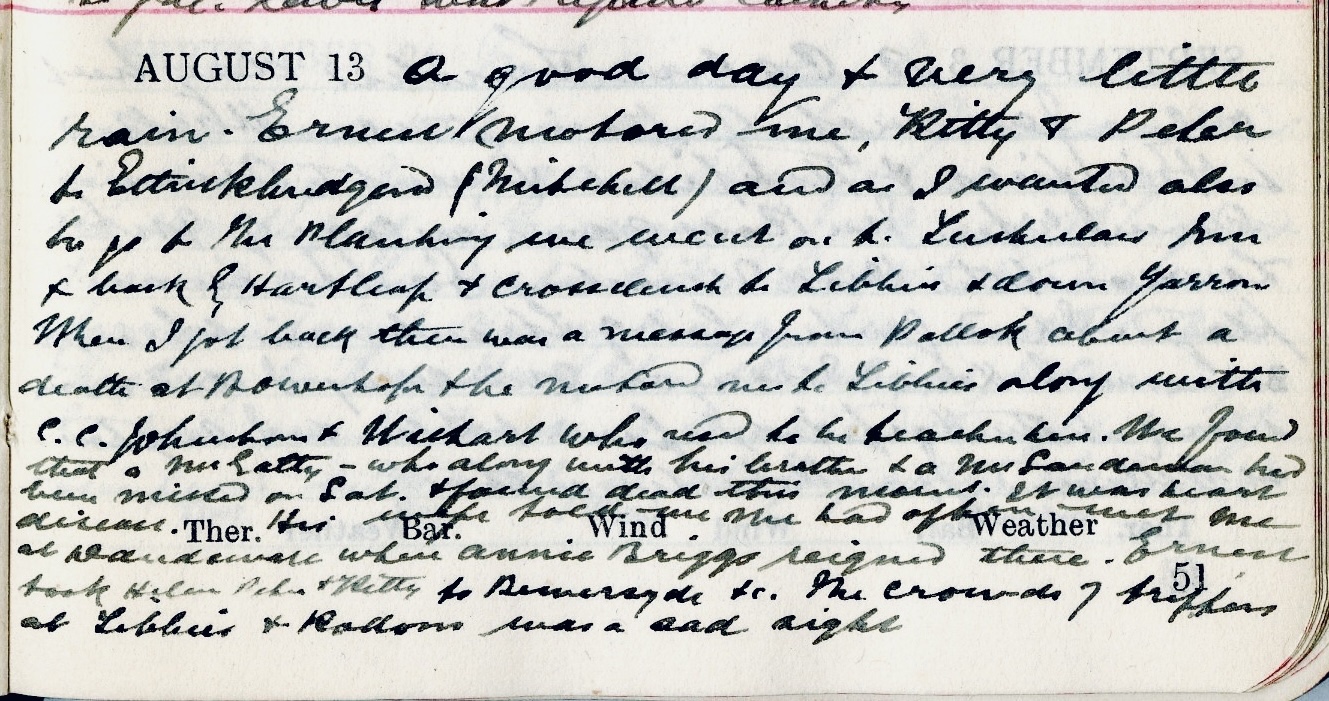 AUGUST 13 A good day & very little
rain. Ernest motored me, Kitty & Peter
to Ettrickbridgend (Mitchell) and as I wanted also
to go to the Planting we went on to Tushielaw Inn
& back by Hartleap & Crosscleuch to Tibbies & down Yarrow
When I got back there was a message from Pollok about a
death at Bowerhope & he motored me to Tibbies along with
C. C. Johnston & Wishart who used to be teacher here. We found
that a Mr Gatty - who along with his brother & a Mr Sandeman had
been missed on Sat. & found dead this morng. It was heart
disease. His wife told me she had often met me
at when Annie Briggs reigned there. Ernest
took Helen Peter & Kitty to Bemersyde &c. The crowds of trippers
at Tibbies & Rodono was a sad sight
Ther. Bar. Wind Weather
51